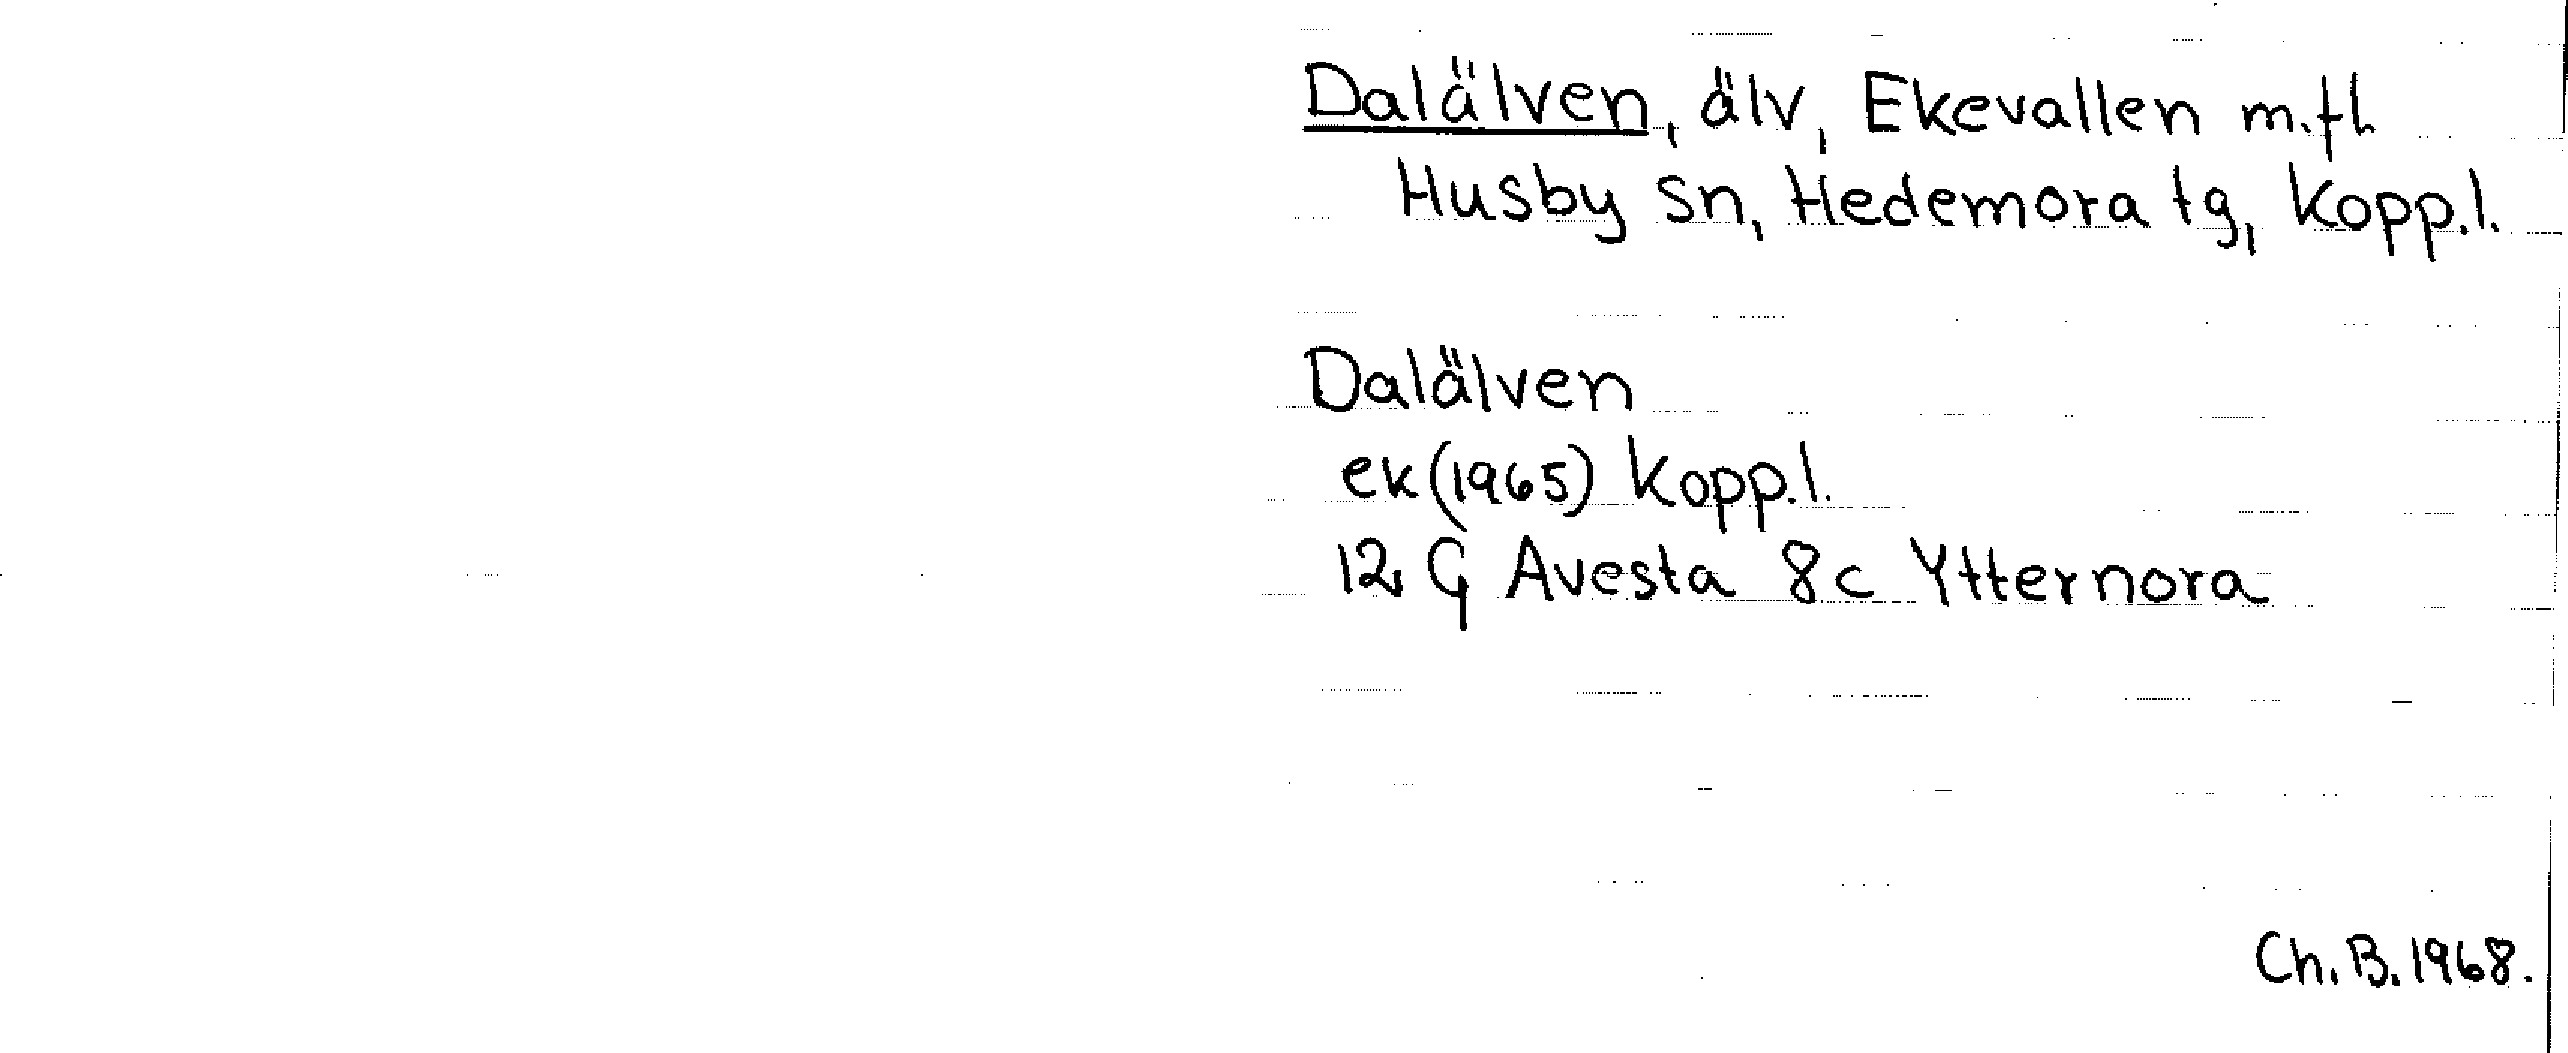 Dalälven, älv, Ekevallen m.fl.
Husby sn, Hedemora tg, Kopp.l.
Dalälven
ek (1965) Kopp.l.
12 G Avesta 8c Ytternora
Ch. B. 1968.